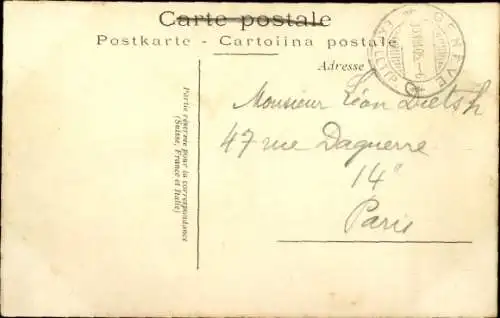 Carte postale
Postkarte - Cartolina postale
Adresse
GENÈVE
Monsieur Léon Dietsh
47 rue Daguerre
14e
Paris
Partie réservée pour la correspondance
(Suisse, France et Italie)